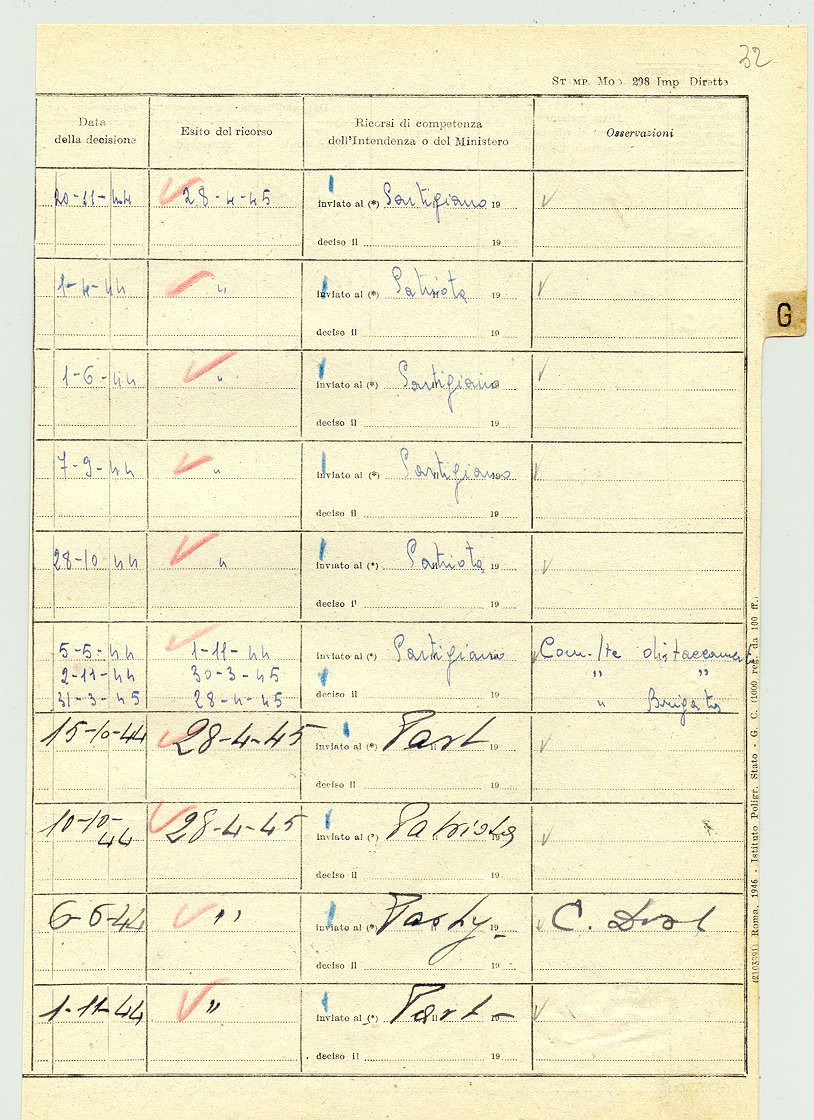 32
ST MP. MOD. 298 Imp Dirette
Data della decisione
Esito del ricorso
Ricorsi di competenza dell'Intendenza o del Ministero
Osservazioni
20-11-44 28-4-45 inviato al (*) Partigiano 19
deciso il 19
1-4-44 " inviato al (*) Patriota 19
deciso il 19
G
1-6-44 " inviato al (*) Partigiano
deciso il 19
7-9-44 " inviato al (*) Partigiano 19
deciso il 19
28-10-44 " inviato al (*) Patriota 19
deciso il 19
5-5-44 1-11-44 inviato al (*) Partigiano Com/te distaccamento
2-11-44 30-3-45 " "
31-3-45 28-4-45 deciso il 19 " Brigata
15-10-44 28-4-45 inviato al (*) Part 19
deciso il 19
10-10-44 28-4-45 inviato al (*) Patriota 19
deciso il 19
6-6-44 " inviato al (*) 19 C.
deciso il 19
1-11-44 " inviato al (*) Part- 19
deciso il 19
Roma, 1946 - Istituto Poligr. Stato - G. C. (1000 reg. da 100 ff.)